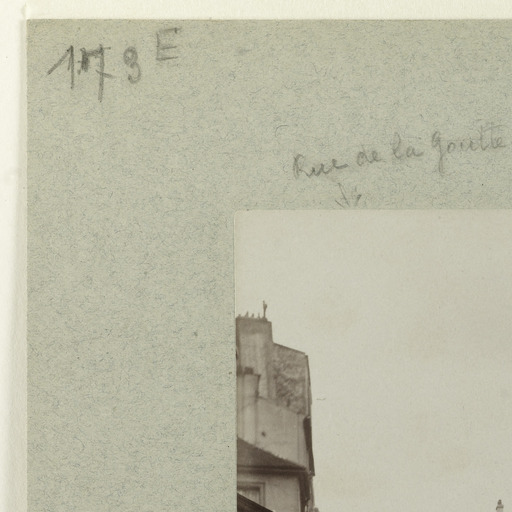 173 E
Rue de la Goutte